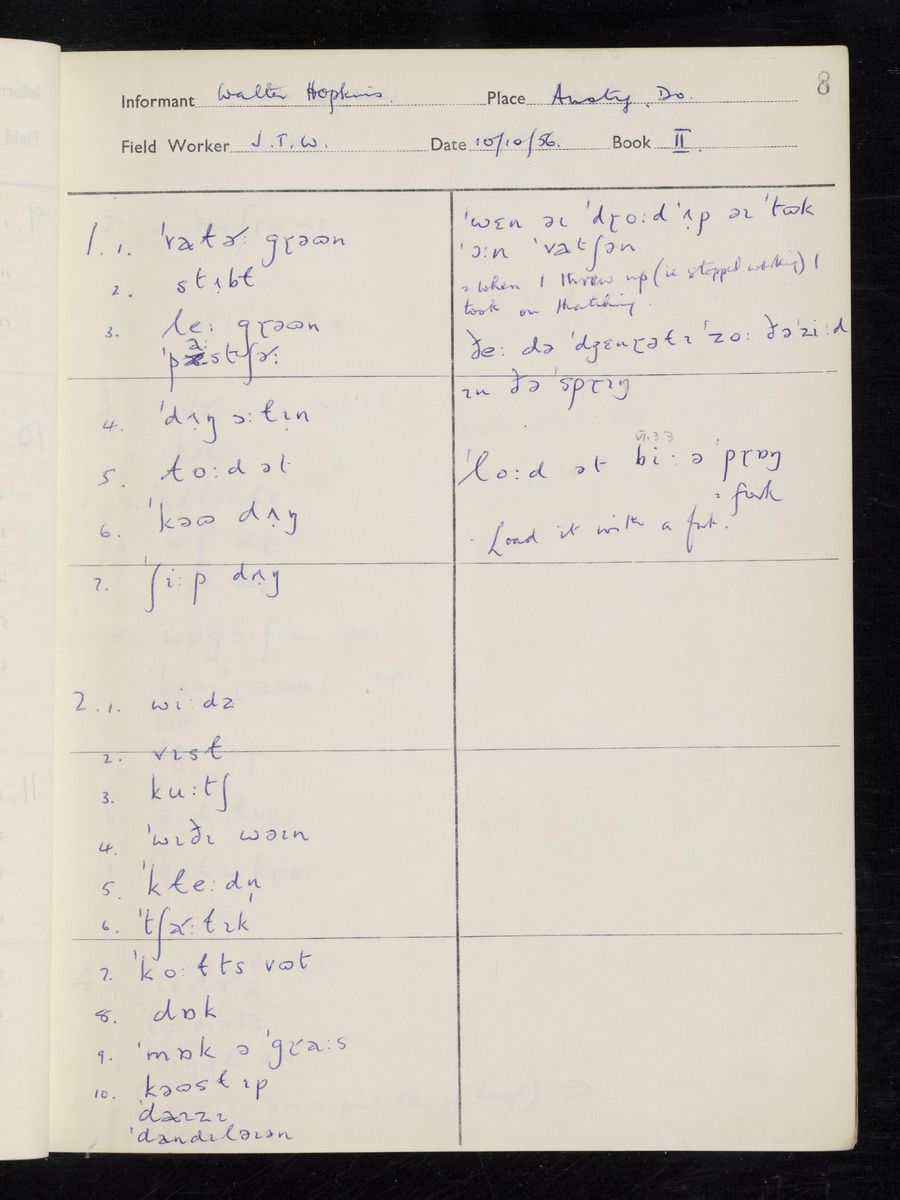 8
Informant Walter Hopkins. Place Ansty, Do.
Field Worker J.T.W. Date 10/10/56. Book II.
1. 1. ˈvatɚː gɽəʊn
2. stʌbɫ
3. leː gɽəʊn
ˈpaːstʃɚː
4. ˈdʌŋ ɔːɫɪn
5. ɫoːd ət
6. ˈkəʊ dʌŋ
7. ˈʃiːp dʌŋ
2. 1. wiːdz
2. vɪst
3. kuːtʃ
4. ˈwɪðɪ wəɪn
5. ˈkɫeːdn̩
6.
7. ˈkoːɫts vʊt
8. dɒk
9. ˈmɒk ə ˈgɽaːs
10. kəʊsɫɪp
ˈdaɪzɪ
ˈdandɪləɪən
ˈwɛn əɪ ˈdɽoːd ˈʌp əɪ ˈtʊk
ˈɔːn ˈvatʃən
= when I threw up (ie stopped working) I
took on thatching.
ðeː də ˈdʒɛnɽətɪ ˈzoː ðəˈziːd
ɪn ðə ˈspɽɪŋ
VI.3.3
ˈloːd ət biː ə ˈpɽɒŋ
= fork
Load it with a fork.